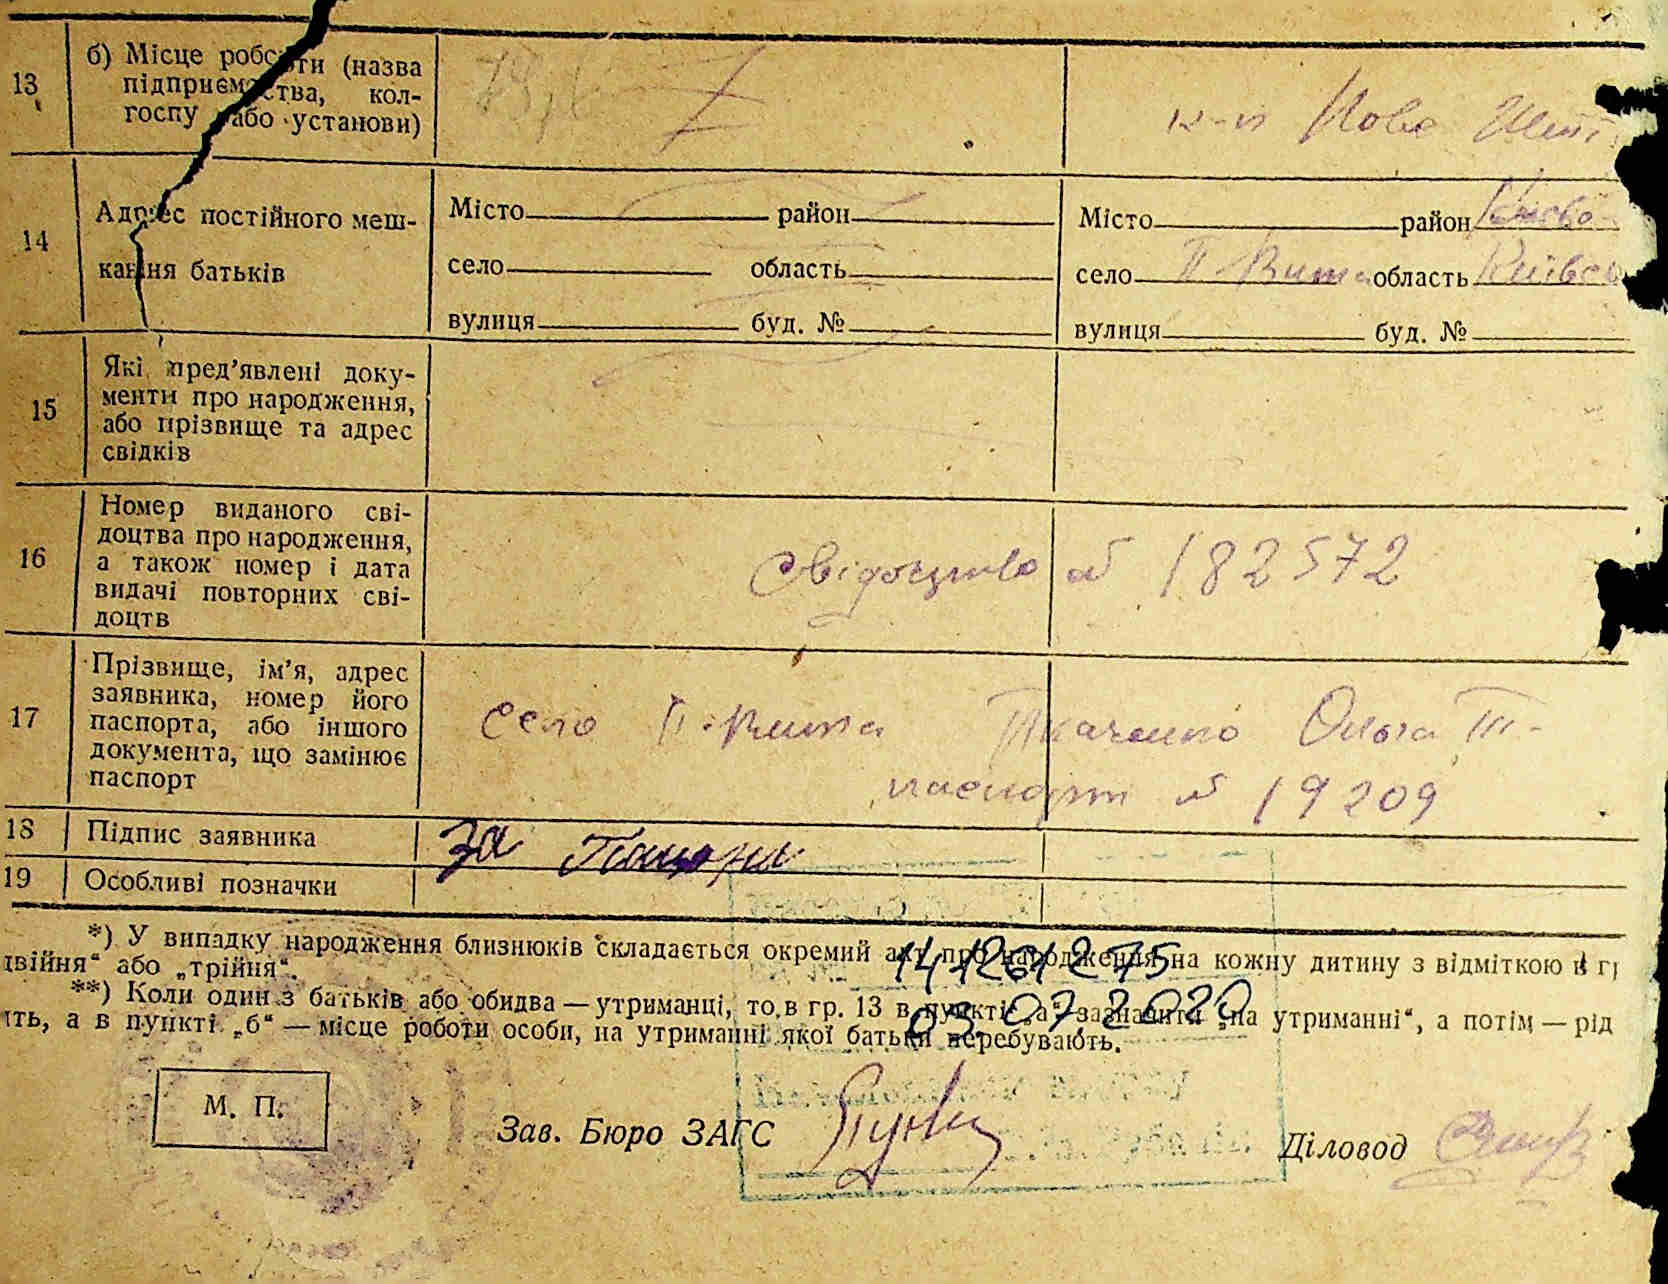 13
б) Місце роботи (назва
підприємства, кол-
госпу або установи)
к-п Нове
14
Адрес постійного меш-
кання батьків
Місто район
село область
вулиця буд. №
Місто район Києво
село П-Вита область Київсь
вулиця буд. №
15
Які пред’явлені доку-
менти про народження,
або прізвище та адрес
свідків
16
Номер виданого сві-
доцтва про народження,
а також номер і дата
видачі повторних сві-
доцтв
Свідоцтво № 182572
17
Прізвище, ім’я, адрес
заявника, номер його
паспорта, або іншого
документа, що замінює
паспорт
село П-Вита Ткаченко Ольга Т-
паспорт № 19209
18 Підпис заявника
За
19 Особливі позначки
*) У випадку народження близнюків складається окремий акт про народження на кожну дитину з відміткою в гр
двійня“ або „трійня“.
**) Коли один з батьків або обидва — утриманці, то в гр. 13 в пункті „а“ зазначити „на утриманні“, а потім — рід
ть, а в пункті „б“ — місце роботи особи, на утриманні якої батьки перебувають.
03.07.2020
М. П.
Зав. Бюро ЗАГС
Діловод